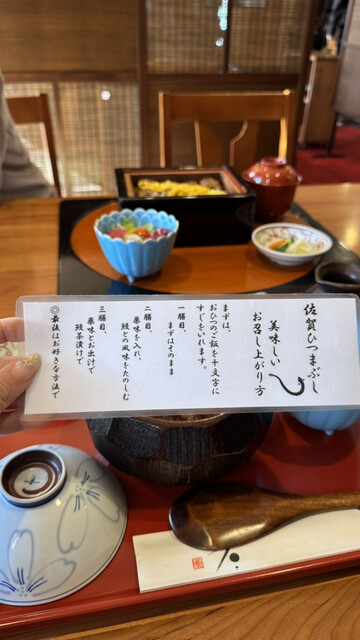 佐賀ひつまぶし
美味しい
お召し上がり方
まずは、
おひつのご飯を十文字に
すじをいれます。
一膳目、
まずはそのまま
二膳目、
薬味を入れ、
鰻との風味をたのしむ
三膳目、
薬味とお出汁で
鰻茶漬けで
◎最後はお好きな方法で